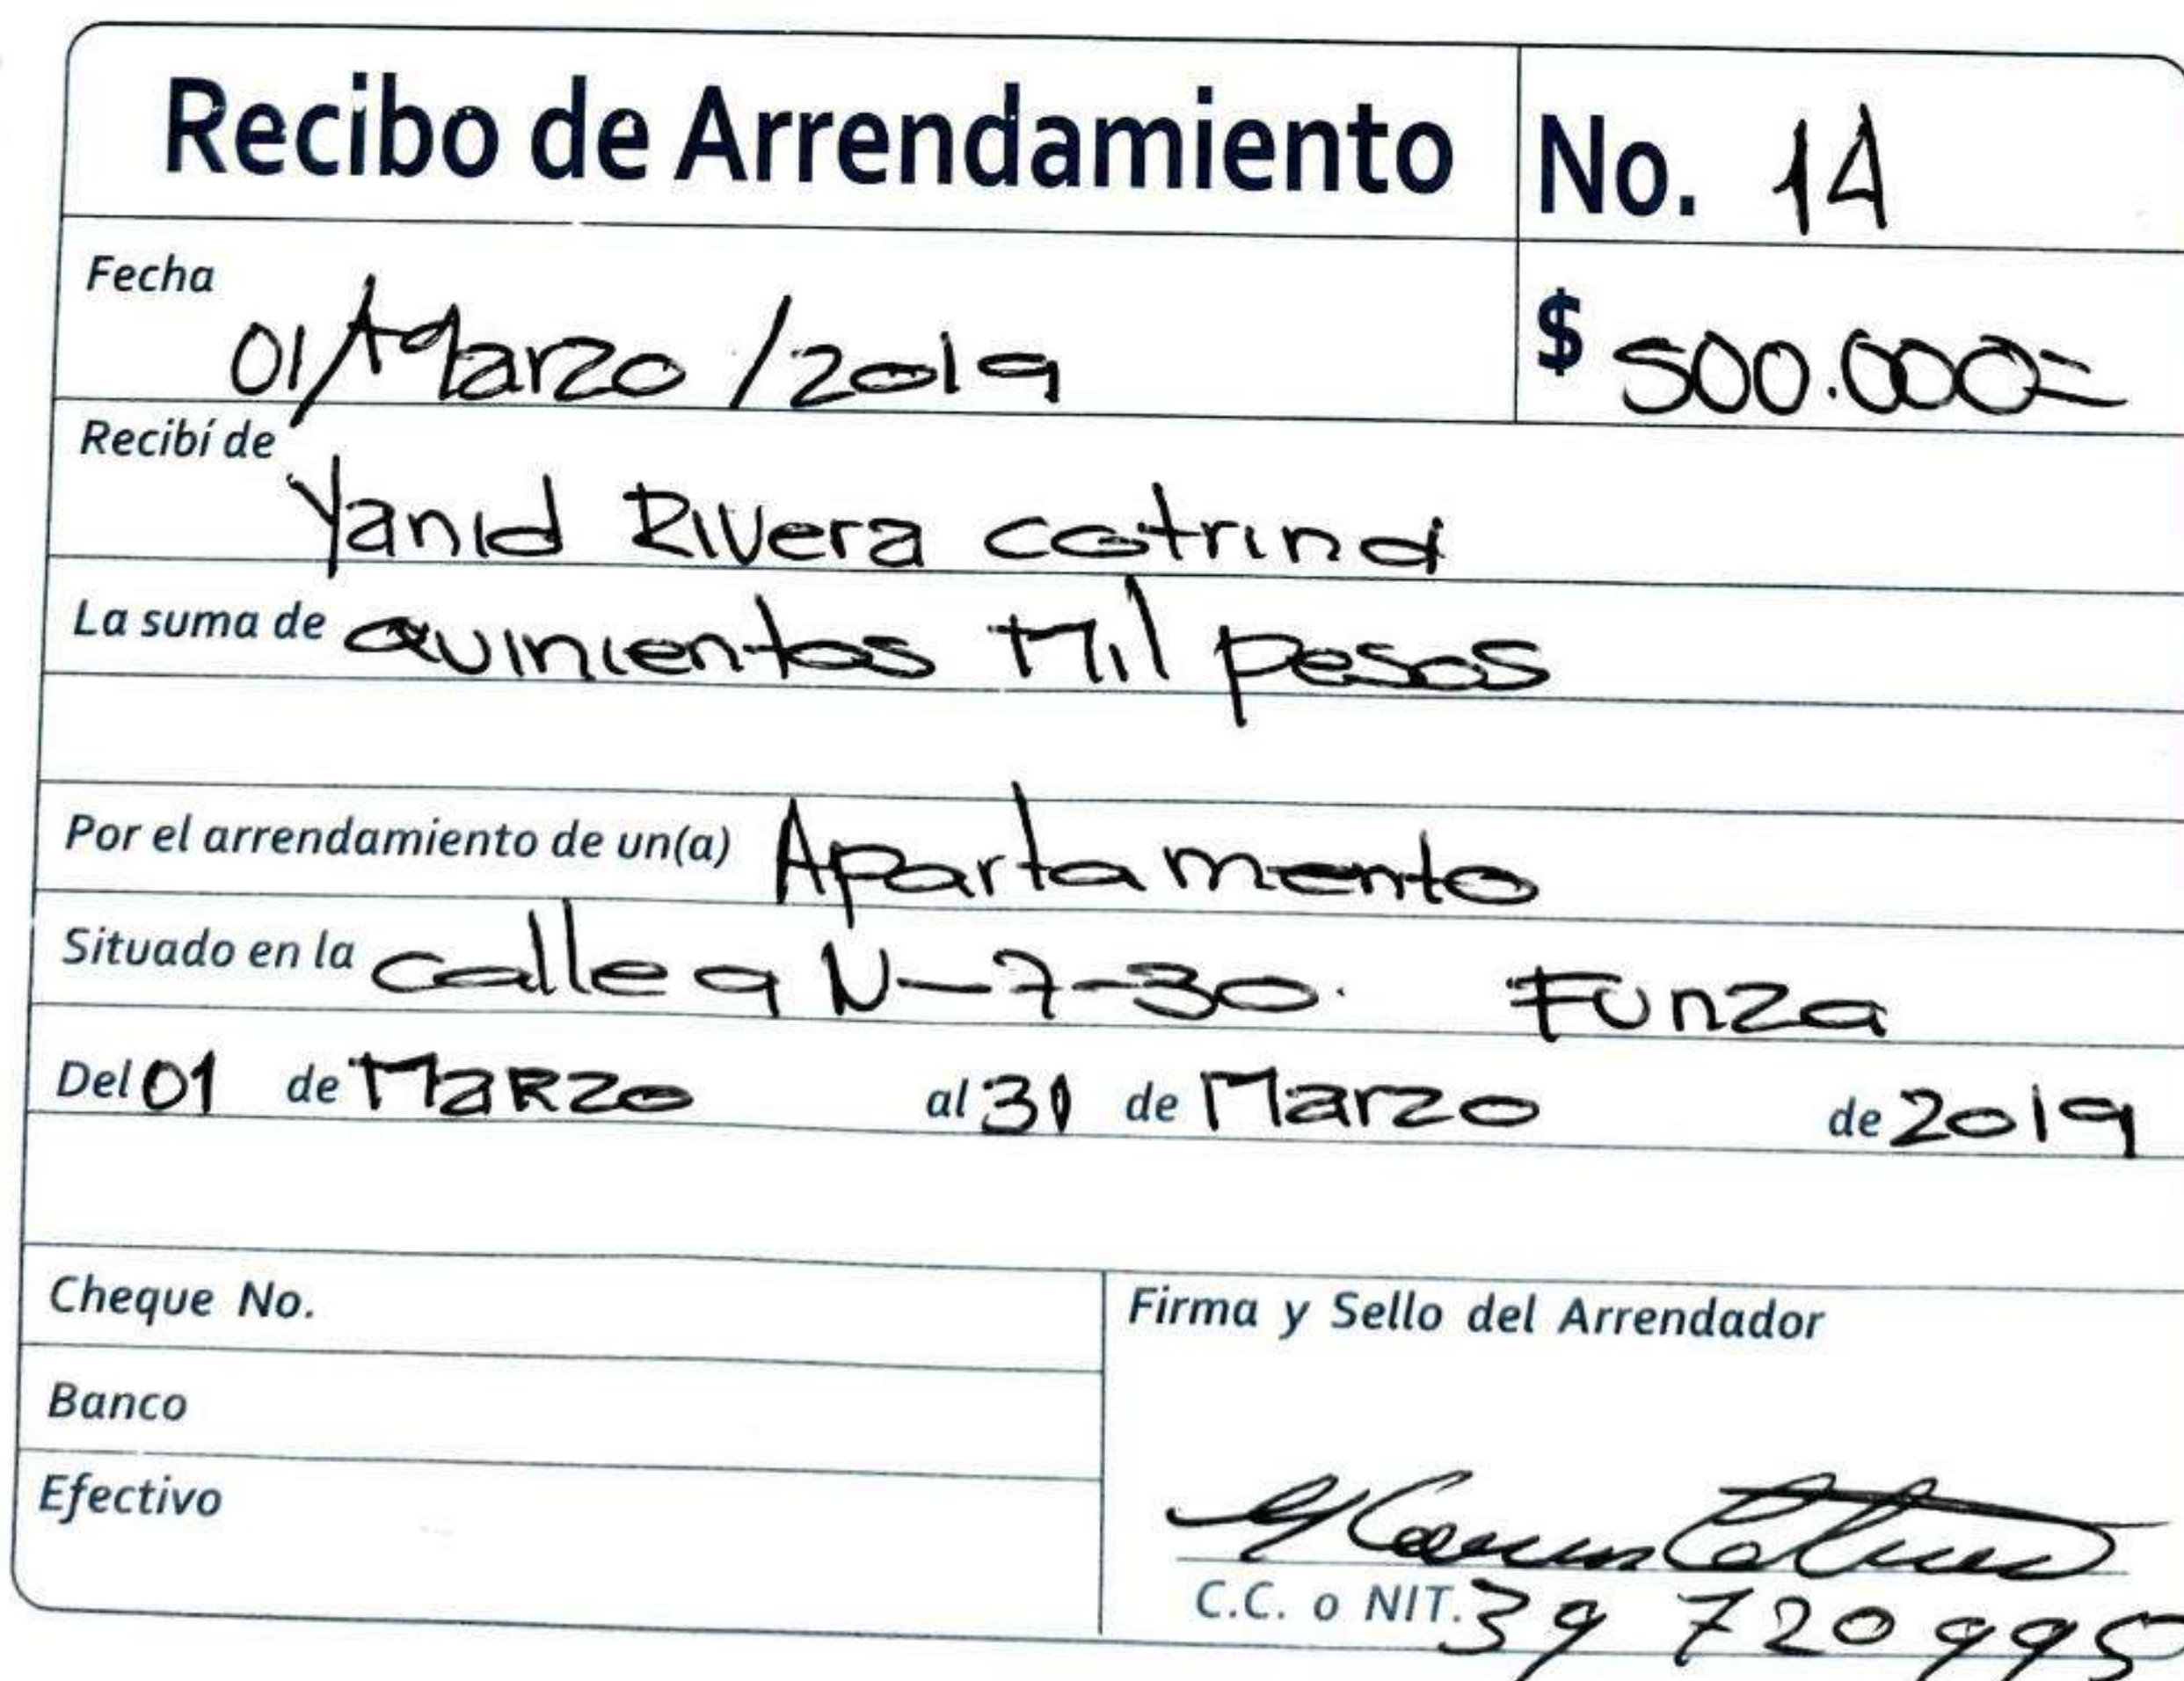 Recibo de Arrendamiento No. 14
Fecha 01/Marzo/2019 $ 500.000=
Recibí de Yanid Rivera cotrina
La suma de quinientos Mil pesos
Por el arrendamiento de un(a) Apartamento
Situado en la calle 9 N-7-30. Funza
Del 01 de MaRzo al 31 de Marzo de 2019
Cheque No.
Firma y Sello del Arrendador
Banco
Efectivo
C.C. o NIT. 39 720 995